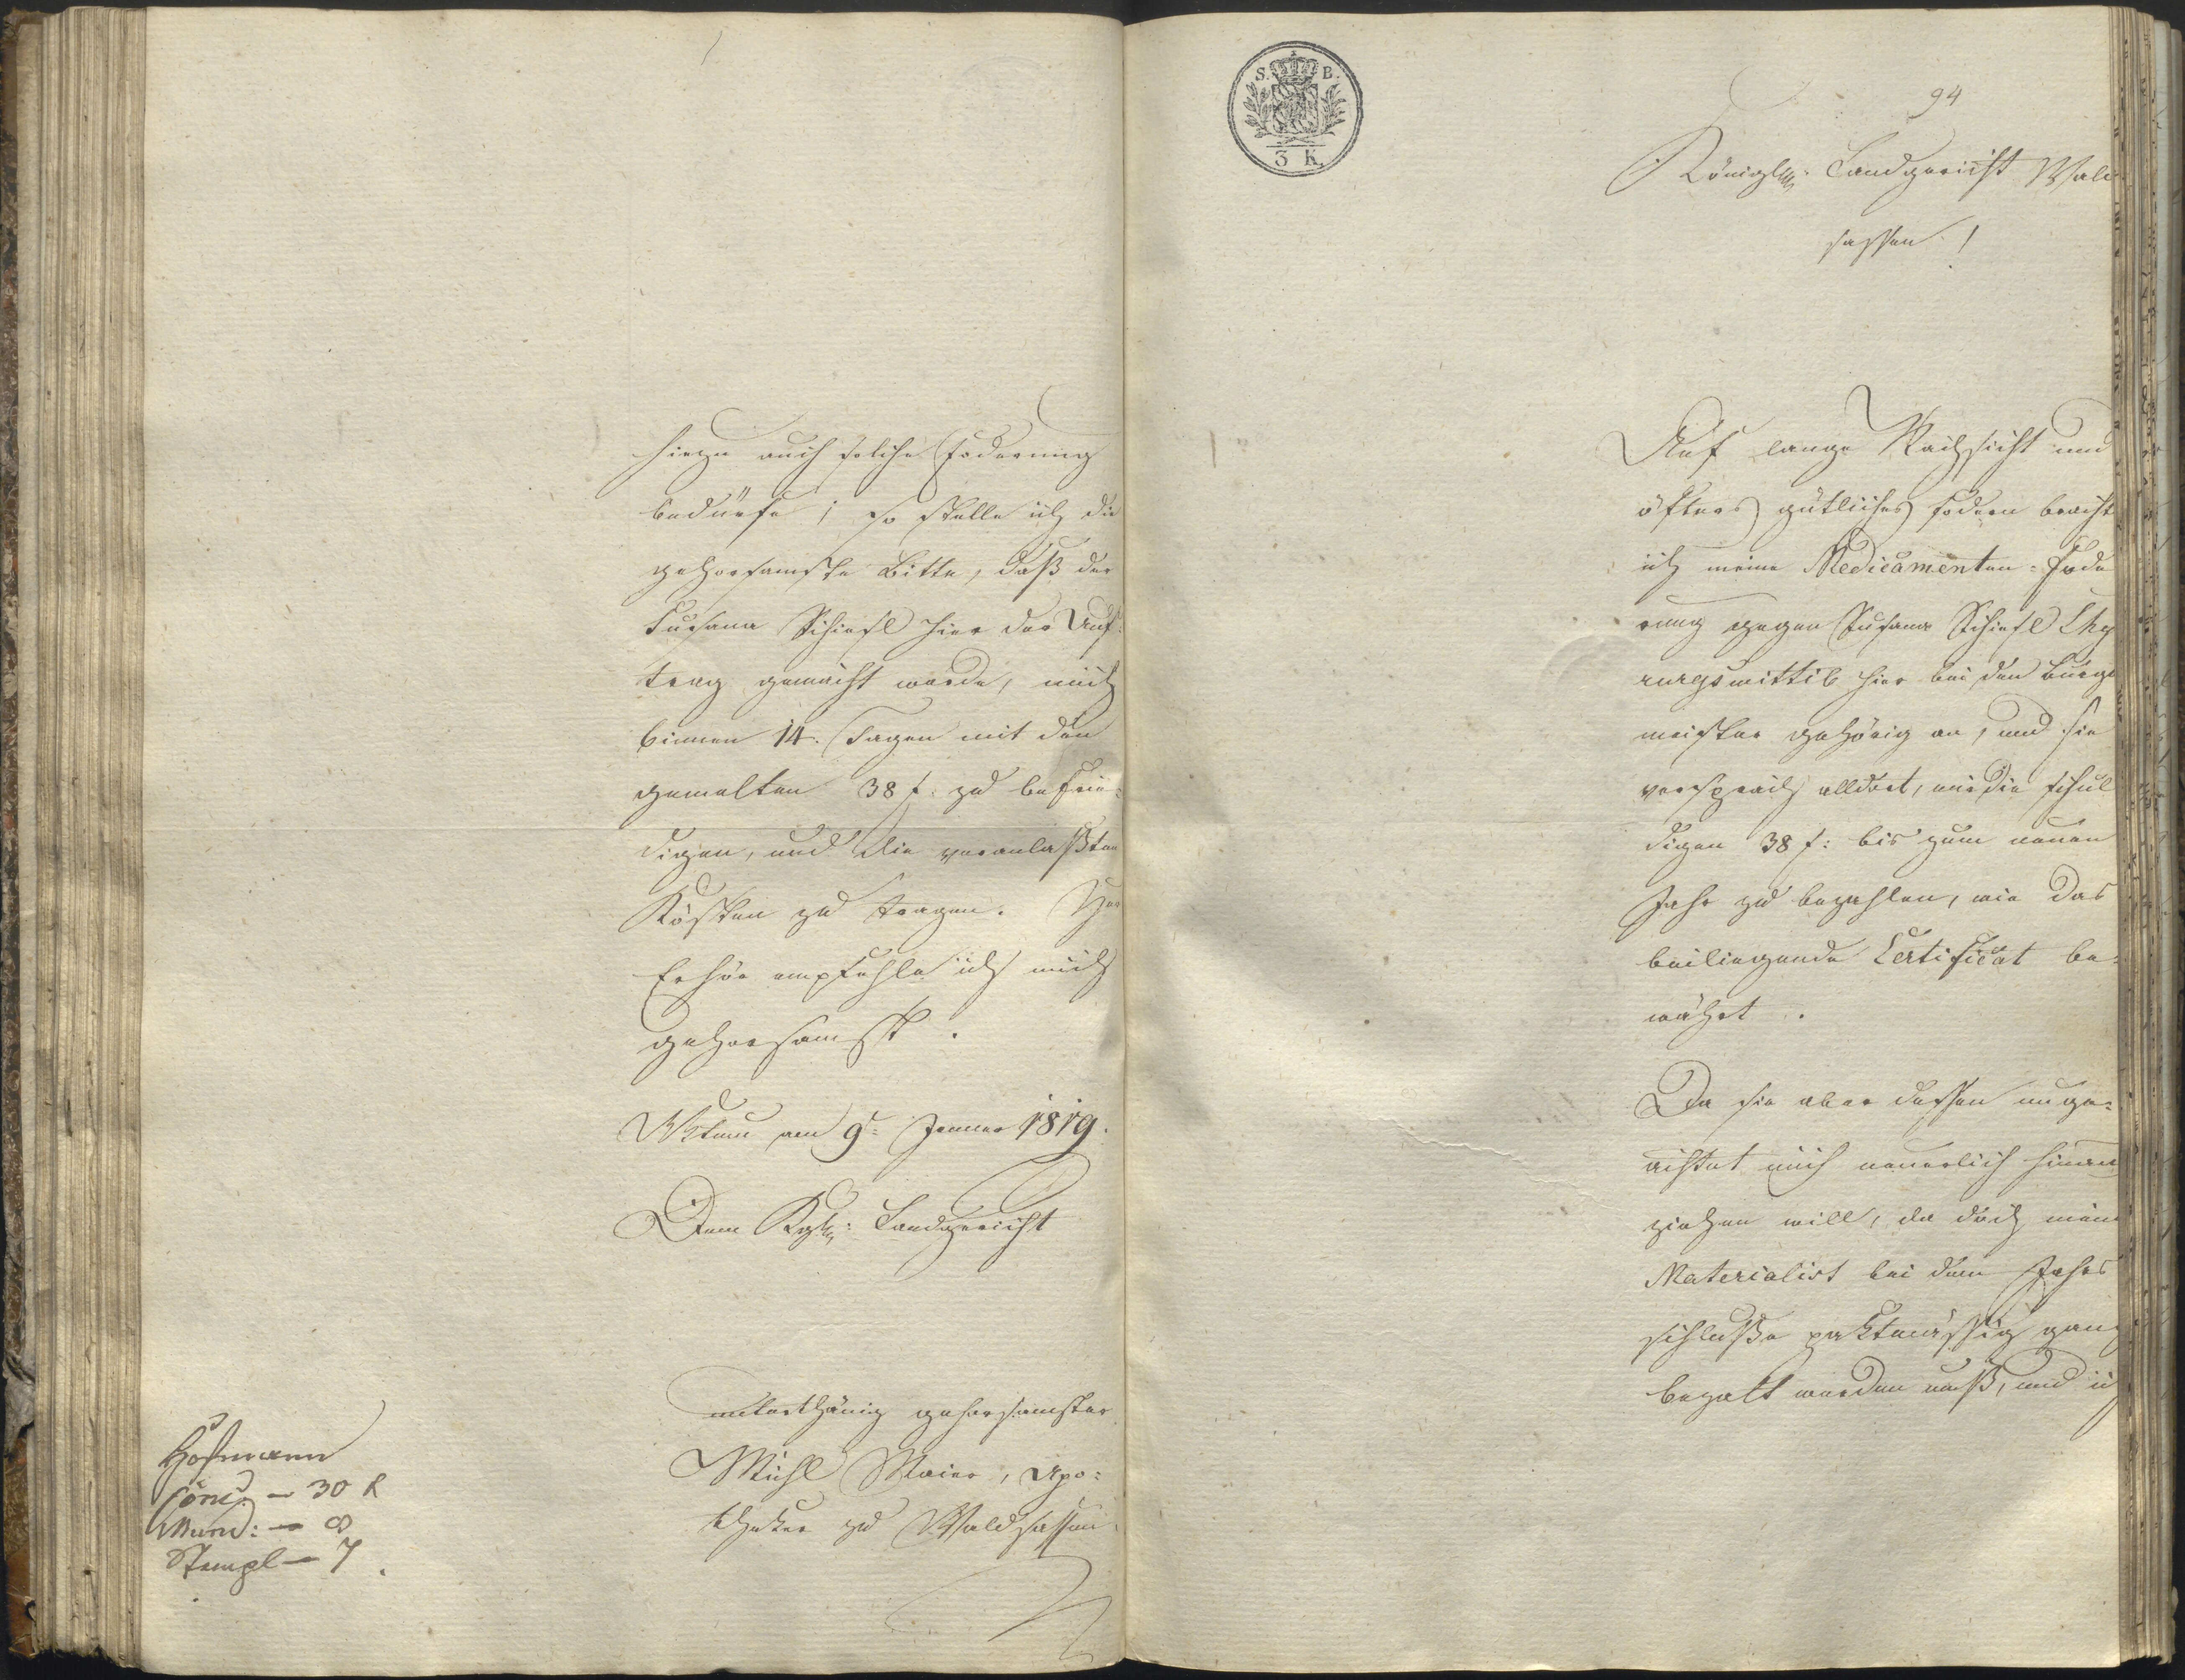 hiezu auch solche Foderung
bedürfe; so stelle ich die
gehorsamste Bitte, daß der
Susana Schiesl hier der Auf-
trag gemacht werde, mich
binnen 14. Tagen mit den
gemelten 38 f. zu befrie-
digen, und die veranlaßten
Kösten zu tragen. Zur
Erhör empfehle ich mich
gehorsamst.
am 9t Jenner 1819.
Dem Kgln: Landgericht
unterthänig gehorsamster
Michl Maier, Apo-
theker zu Waldsassen
Hofmann
Conc. — 30 k
Mund: — 8
Stempl — 7.
S. B.
3 K.
94
Königln: Landgericht Wald
sassen!
Auf lange Nachsicht und
öfters gütliches fodern bracht
ich meine Medicamenten-Fode
rung gegen Susana Schiesl Chy
rurgswittib hier bei den Burge
meister gehörig an, und sie
versprach alldort, mir die schul
digen 38 f: bis zum neuen
Jahr zu bezahlen, wie das
beiliegende Certificat be-
währt.
Da sie aber dessen unge-
achtet mich neuerlich hinaus
ziehen will, da doch mein
Materialist bei dem Jahrs
schluße paktmässig ganz
bezalt werden muß, und ich